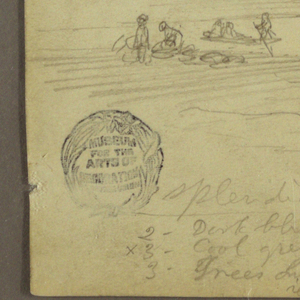 MUSEUM
FOR THE
ARTS OF
DECORATION
splendi
2 - Dark blu
x 3 - Cool gre
3 - Trees